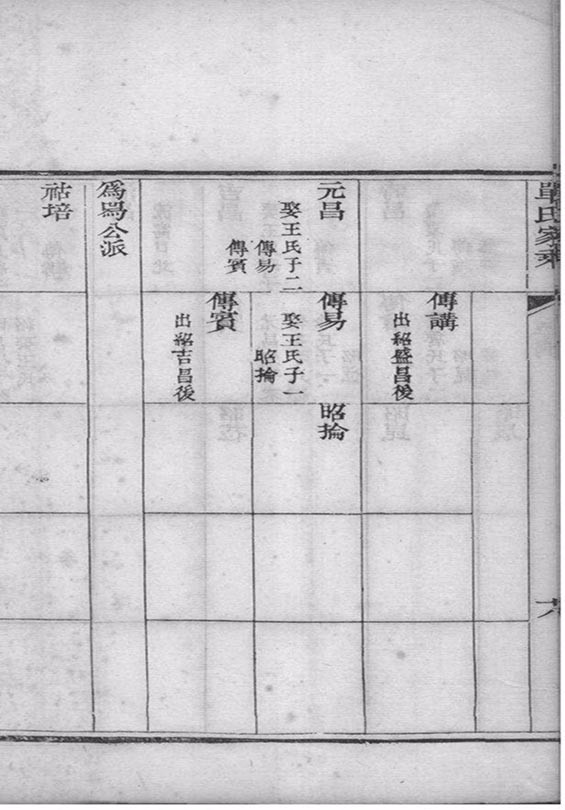 單氏家乘
六
傳講
出紹盛昌後
元昌
娶王氏子二
傳易
傳賓
傳易
娶王氏子一
昭掄
昭掄
傳賓
出紹吉昌後
為舄公派
祜培